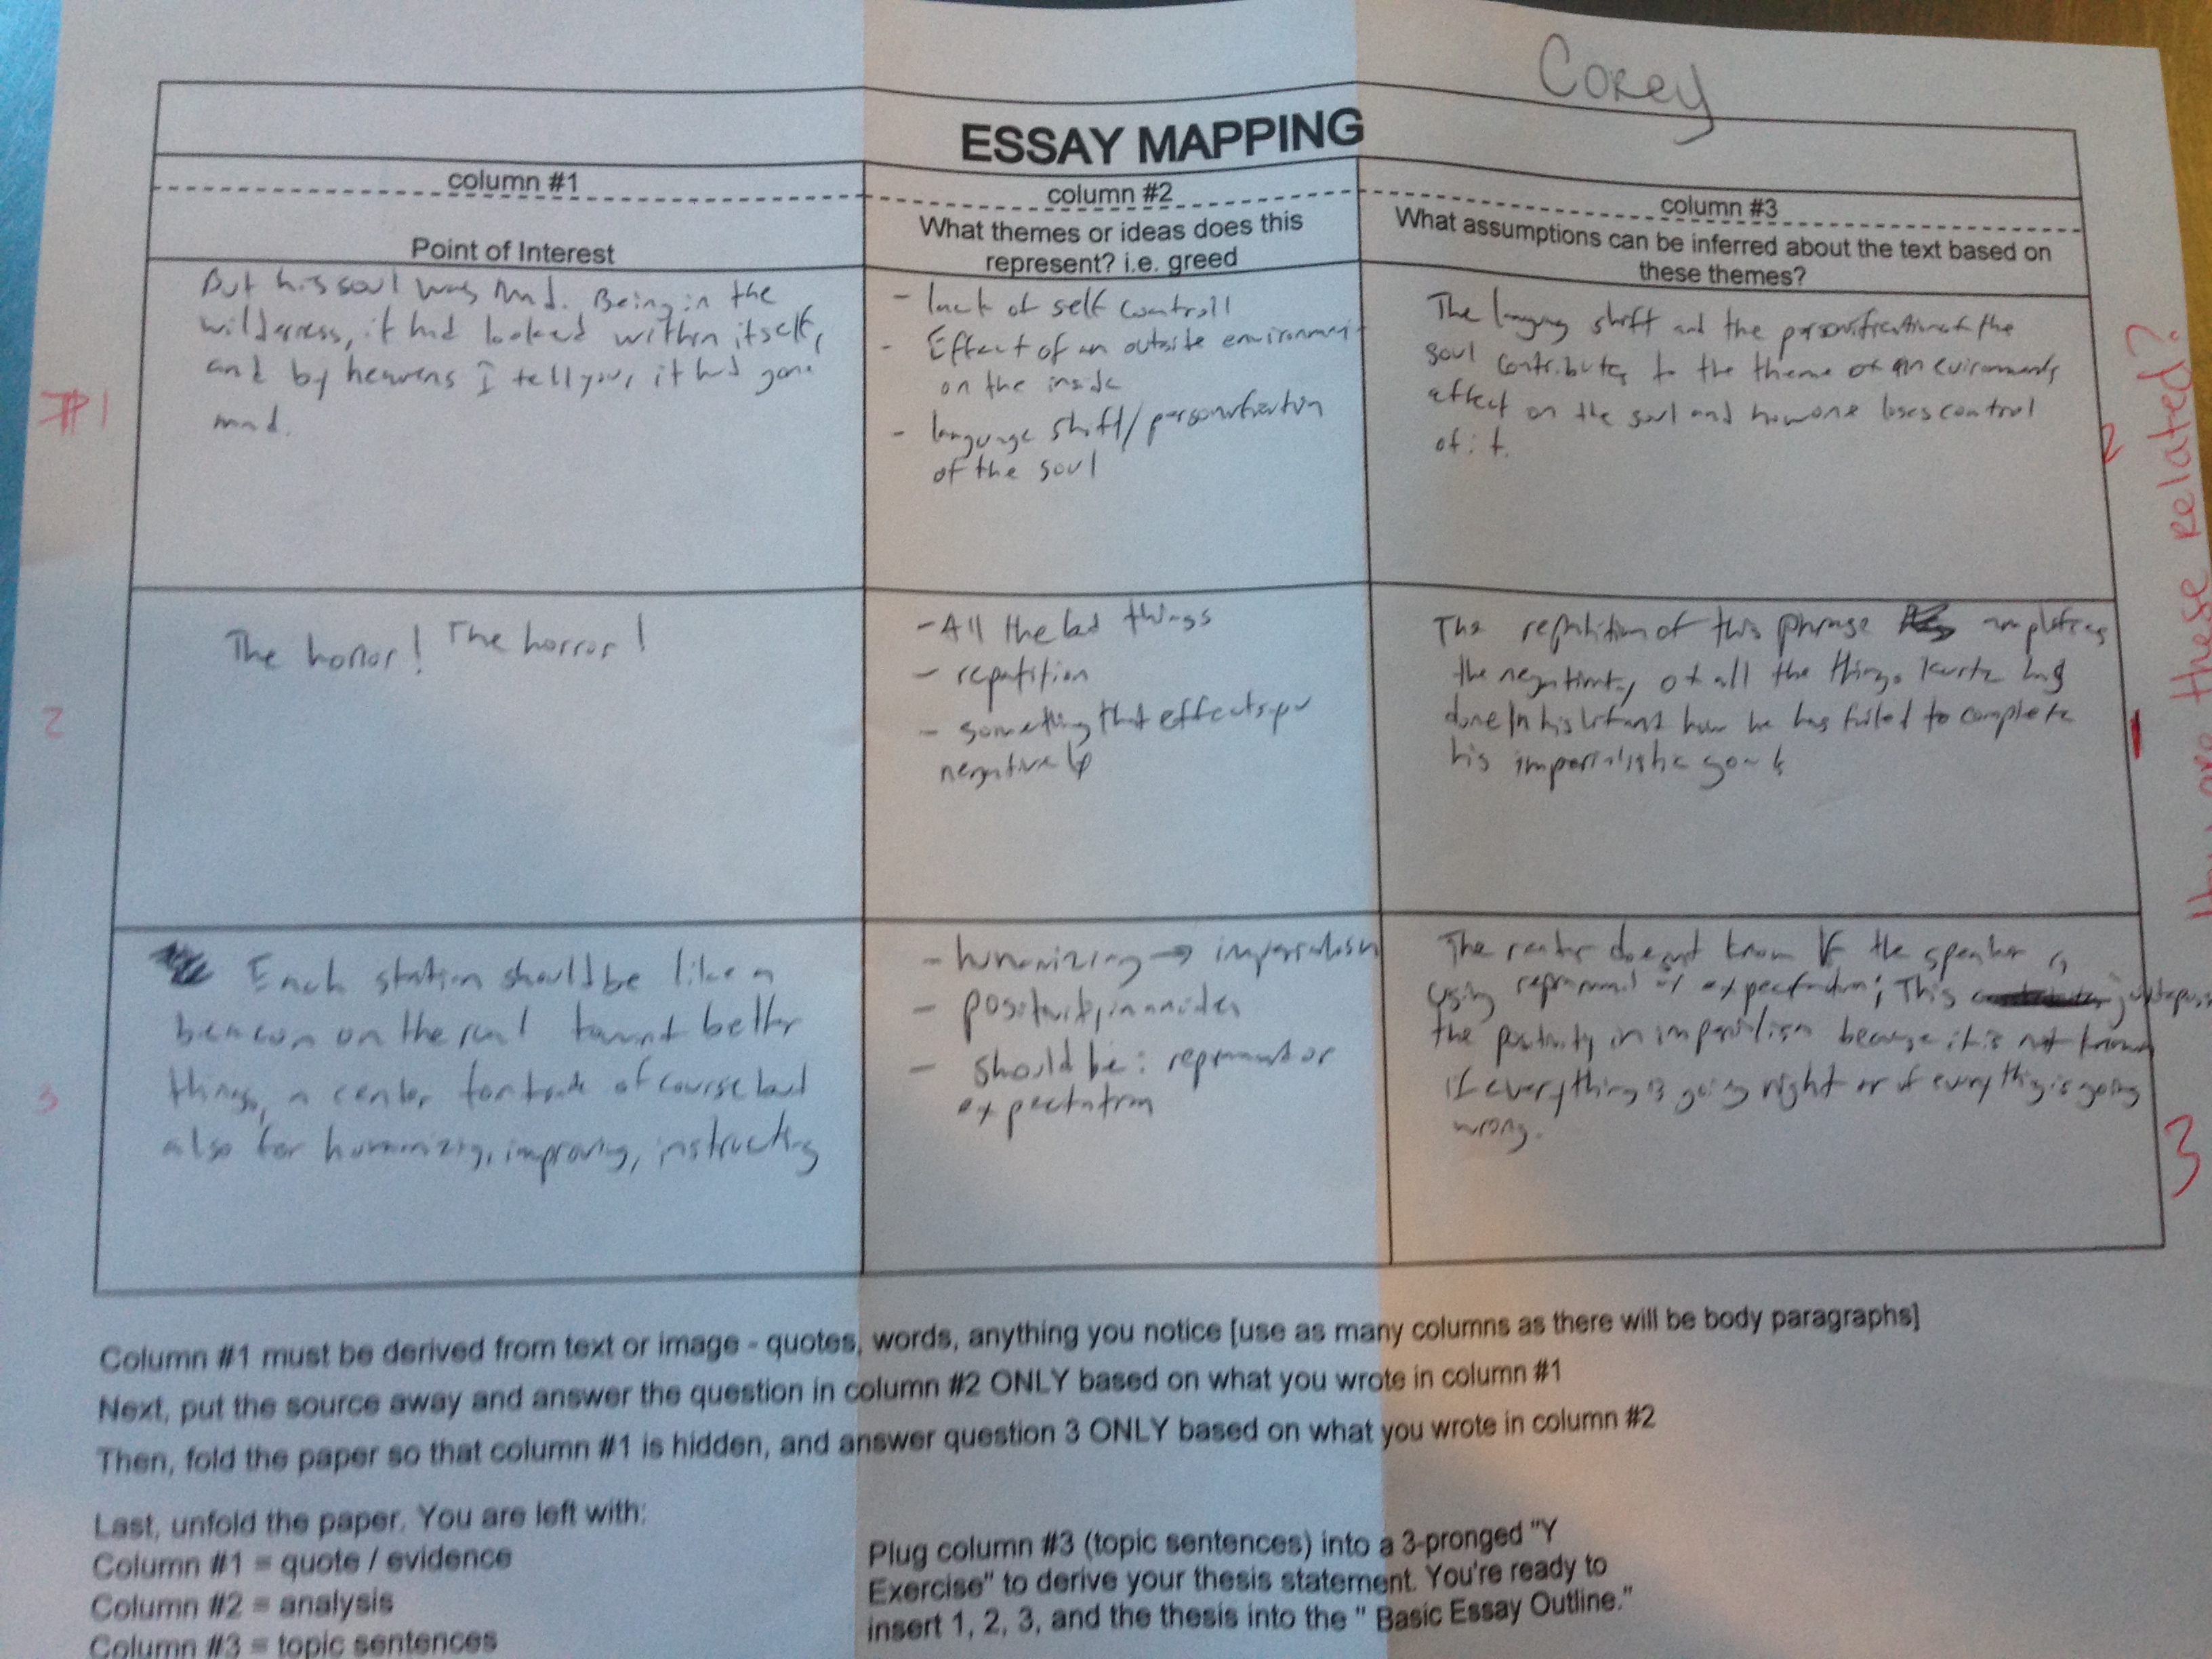 Corey
ESSAY MAPPING
column #1
Point of Interest
But his soul was mad. Being in the
wilderness, it had looked within itself,
and by heavens I tell you, it had gone
mad.
#1
column #2
What themes or ideas does this
represent? i.e. greed
- lack of self controll
- Effect of an outside environment
on the inside
- language shift/personification
of the soul
column #3
What assumptions can be inferred about the text based on
these themes?
The shift and the personification of the
soul contributes to the theme of an
affect on the soul and how one loses control
of it.
2
The horror! The horror!
2
- All the bad things
- repatition
- something that effects you
negatively
The repatition of this phrase
the negativity of all the things Kurtz has
done in his how he has failed to complete
his imperialistic goals
1
Each station should be like a
beacon on the road toward better
things, a center for trade of course but
also for humanizing, improving, instructing
3
- humanizing → imperialism
- positivity in
- should be: or
expectation
The reader doesnt know if the speaker is
using or expectation; This
the positivity in imperialism because it is not known
if everything is going right or if everything is going
wrong.
3
are these related?
Column #1 must be derived from text or image - quotes, words, anything you notice [use as many columns as there will be body paragraphs]
Next, put the source away and answer the question in column #2 ONLY based on what you wrote in column #1
Then, fold the paper so that column #1 is hidden, and answer question 3 ONLY based on what you wrote in column #2
Last, unfold the paper. You are left with:
Column #1 = quote / evidence
Column #2 = analysis
Column #3 = topic sentences
Plug column #3 (topic sentences) into a 3-pronged "Y
Exercise" to derive your thesis statement. You're ready to
insert 1, 2, 3, and the thesis into the " Basic Essay Outline."